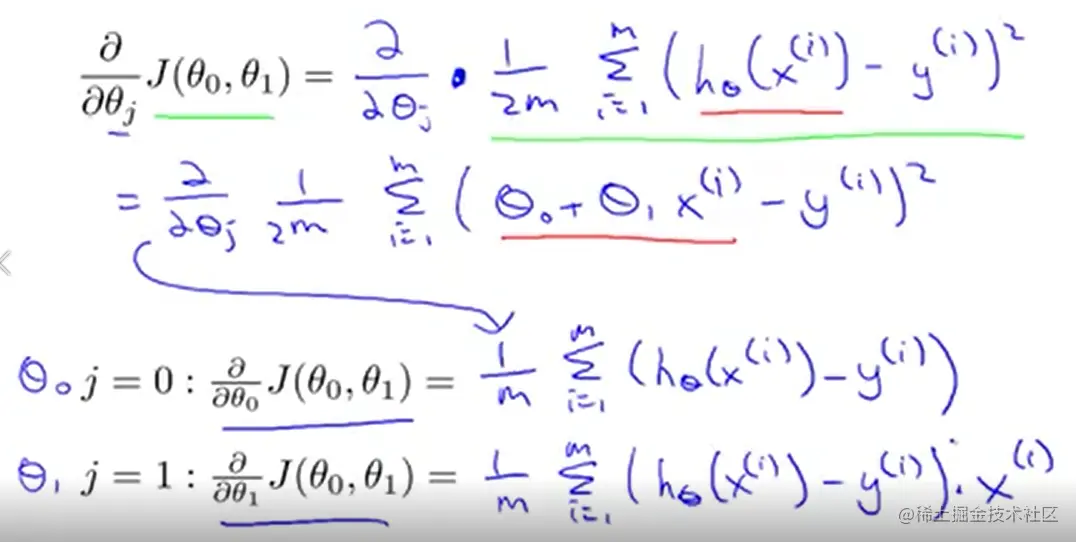 ∂/∂θ_j J(θ₀, θ₁) = ∂/∂θ_j · 1/2m ∑_{i=1}^{m} (h_θ(x^{(i)}) − y^{(i)})²
= ∂/∂θ_j 1/2m ∑_{i=1}^{m} (θ₀ + θ₁ x^{(i)} − y^{(i)})²
θ₀ j = 0 : ∂/∂θ₀ J(θ₀, θ₁) = 1/m ∑_{i=1}^{m} (h_θ(x^{(i)}) − y^{(i)})
θ₁ j = 1 : ∂/∂θ₁ J(θ₀, θ₁) = 1/m ∑_{i=1}^{m} (h_θ(x^{(i)}) − y^{(i)}) · x^{(i)}
@稀土掘金技术社区